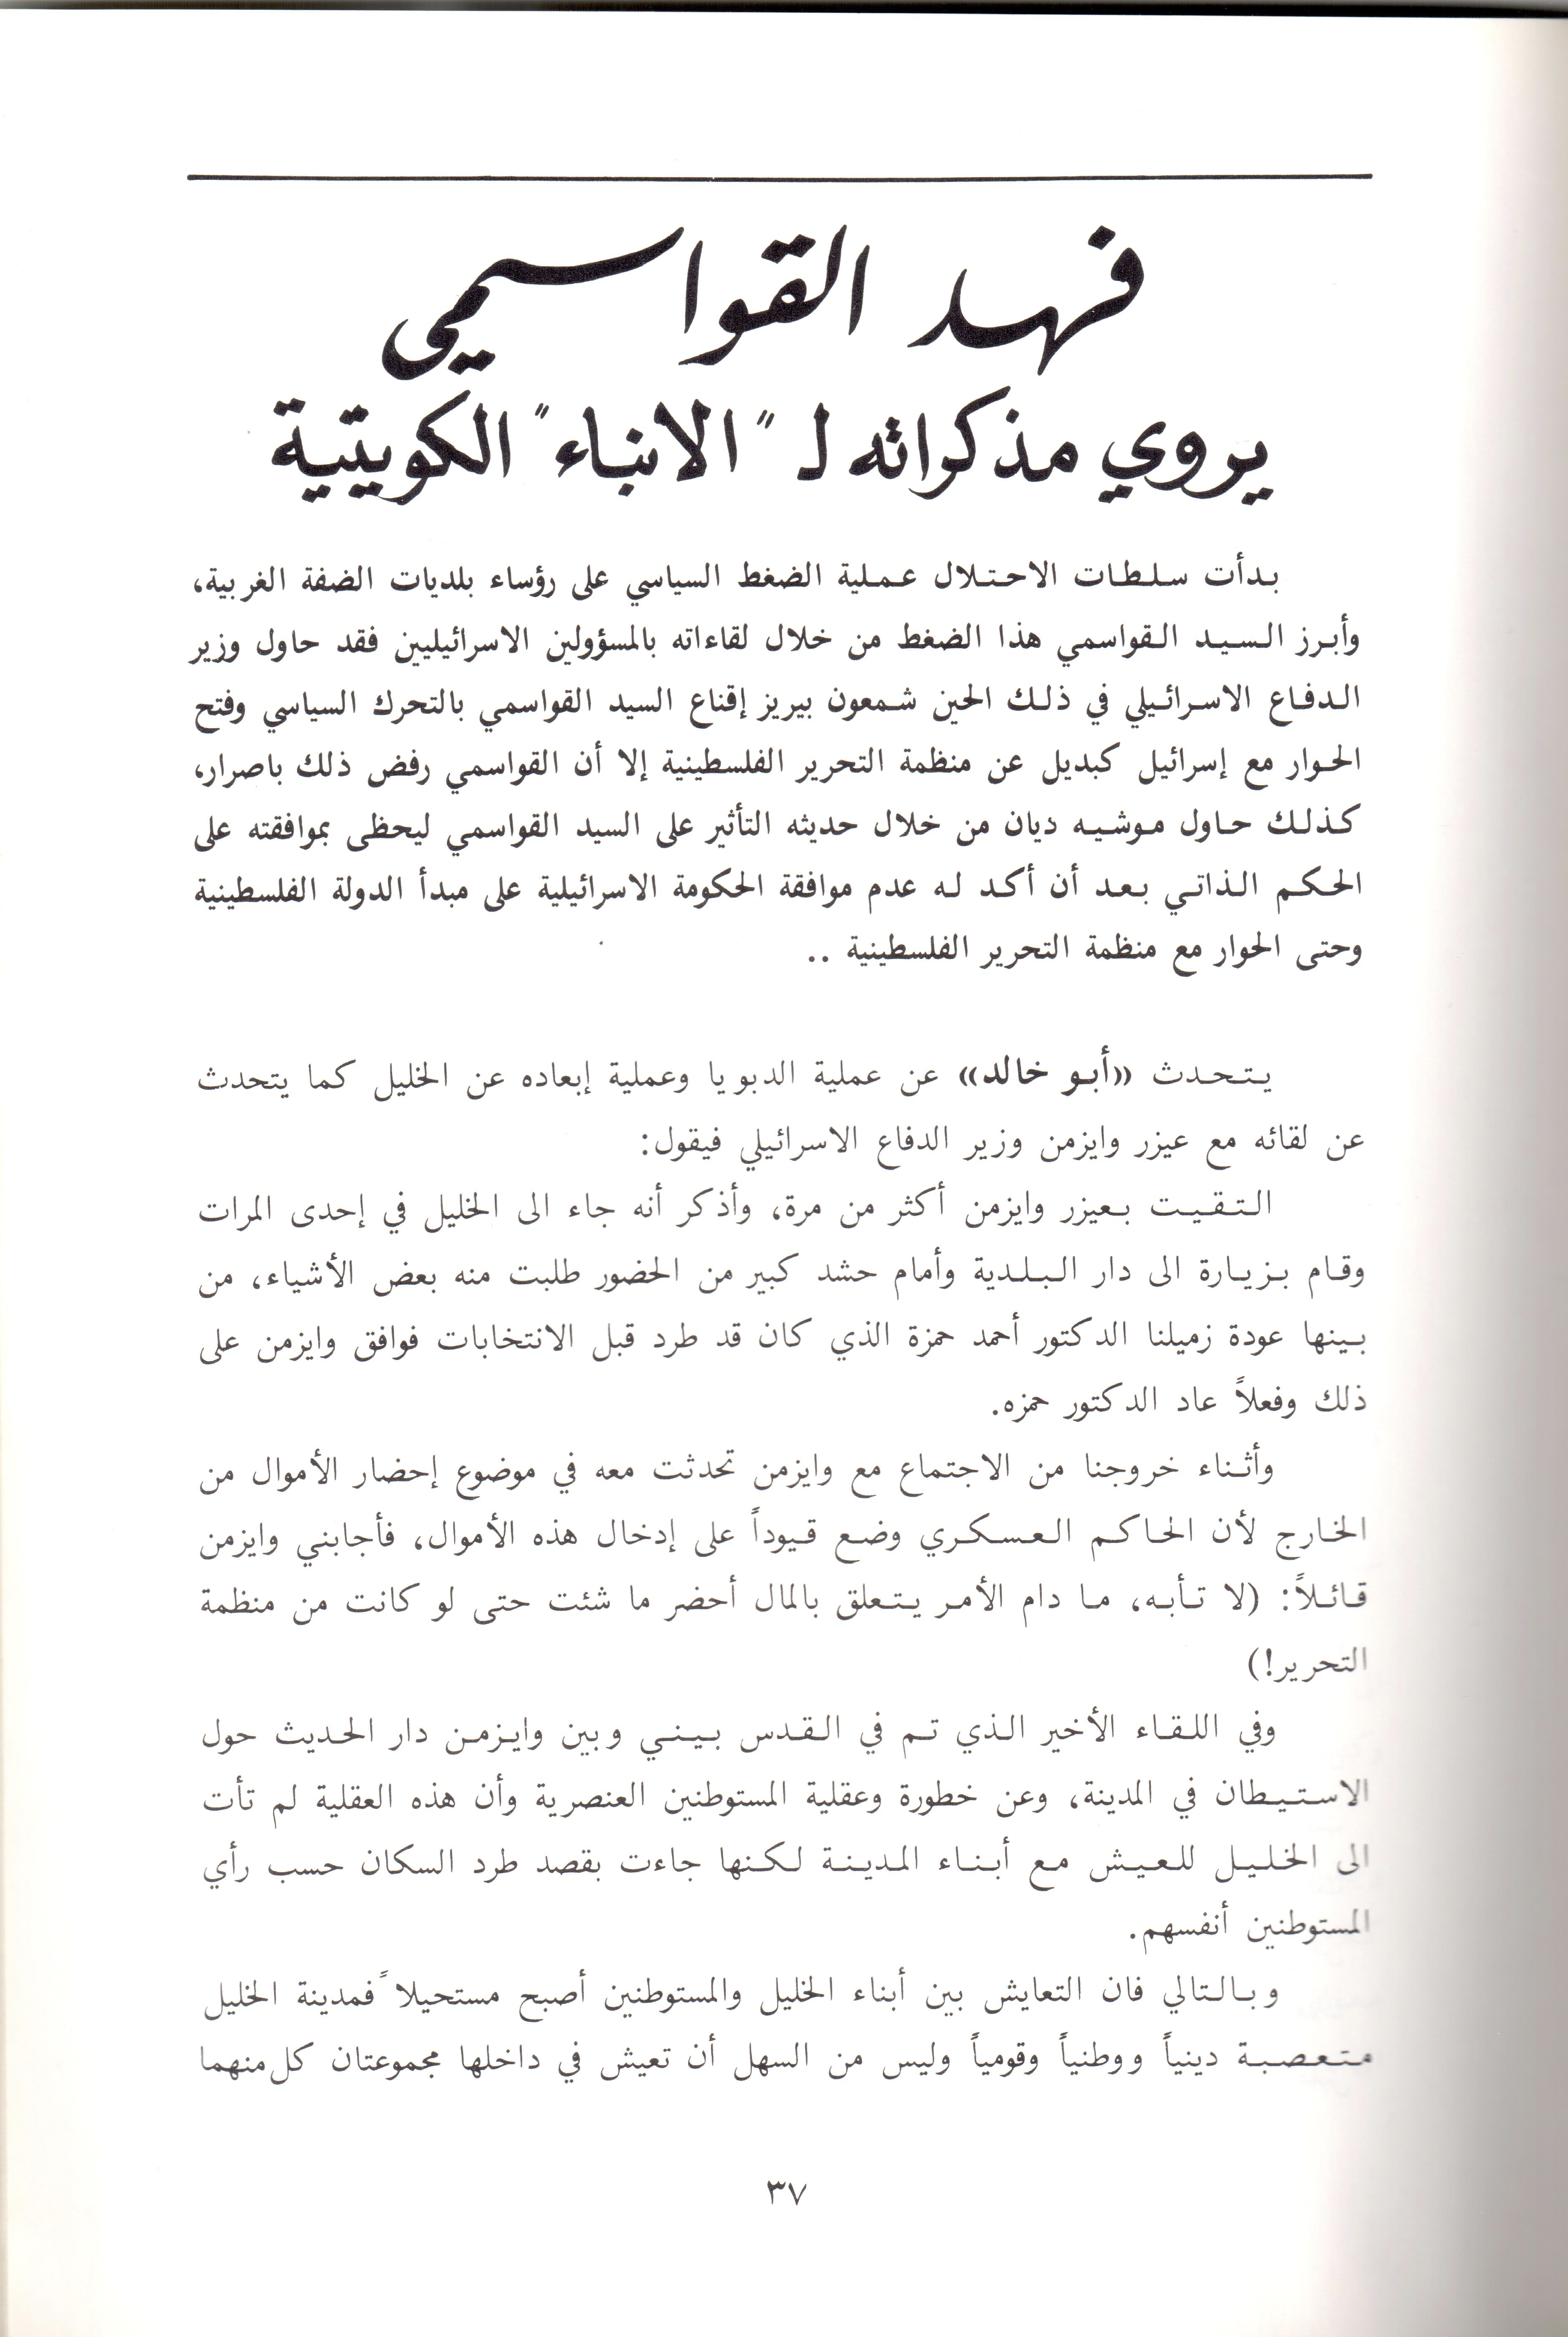 فهد القواسمي
يروي مذكراته لـ "الانباء" الكويتية
بدأت سلطات الاحتلال عملية الضغط السياسي على رؤساء بلديات الضفة الغربية،
وأبرز السيد القواسمي هذا الضغط من خلال لقاءاته بالمسؤولين الاسرائيليين فقد حاول وزير
الدفاع الاسرائيلي في ذلك الحين شمعون بيريز إقناع السيد القواسمي بالتحرك السياسي وفتح
الحوار مع إسرائيل كبديل عن منظمة التحرير الفلسطينية إلا أن القواسمي رفض ذلك باصرار،
كذلك حاول موشيه ديان من خلال حديثه التأثير على السيد القواسمي ليحظى بموافقته على
الحكم الذاتي بعد أن أكد له عدم موافقة الحكومة الاسرائيلية على مبدأ الدولة الفلسطينية
وحتى الحوار مع منظمة التحرير الفلسطينية ..
يتحدث «أبو خالد» عن عملية الدبويا وعملية إبعاده عن الخليل كما يتحدث
عن لقائه مع عيزر وايزمن وزير الدفاع الاسرائيلي فيقول:
التقيت بعيزر وايزمن أكثر من مرة، وأذكر أنه جاء الى الخليل في إحدى المرات
وقام بزيارة الى دار البلدية وأمام حشد كبير من الحضور طلبت منه بعض الأشياء، من
بينها عودة زميلنا الدكتور أحمد حمزة الذي كان قد طرد قبل الانتخابات فوافق وايزمن على
ذلك وفعلاً عاد الدكتور حمزه.
وأثناء خروجنا من الاجتماع مع وايزمن تحدثت معه في موضوع إحضار الأموال من
الخارج لأن الحاكم العسكري وضع قيوداً على إدخال هذه الأموال، فأجابني وايزمن
قائلاً: (لا تأبه، ما دام الأمر يتعلق بالمال أحضر ما شئت حتى لو كانت من منظمة
التحرير!)
وفي اللقاء الأخير الذي تم في القدس بيني وبين وايزمن دار الحديث حول
الاستيطان في المدينة، وعن خطورة وعقلية المستوطنين العنصرية وأن هذه العقلية لم تأت
الى الخليل للعيش مع أبناء المدينة لكنها جاءت بقصد طرد السكان حسب رأي
المستوطنين أنفسهم.
وبالتالي فان التعايش بين أبناء الخليل والمستوطنين أصبح مستحيلاً فمدينة الخليل
متعصبة دينياً ووطنياً وقومياً وليس من السهل أن تعيش في داخلها مجموعتان كل منهما
٣٧